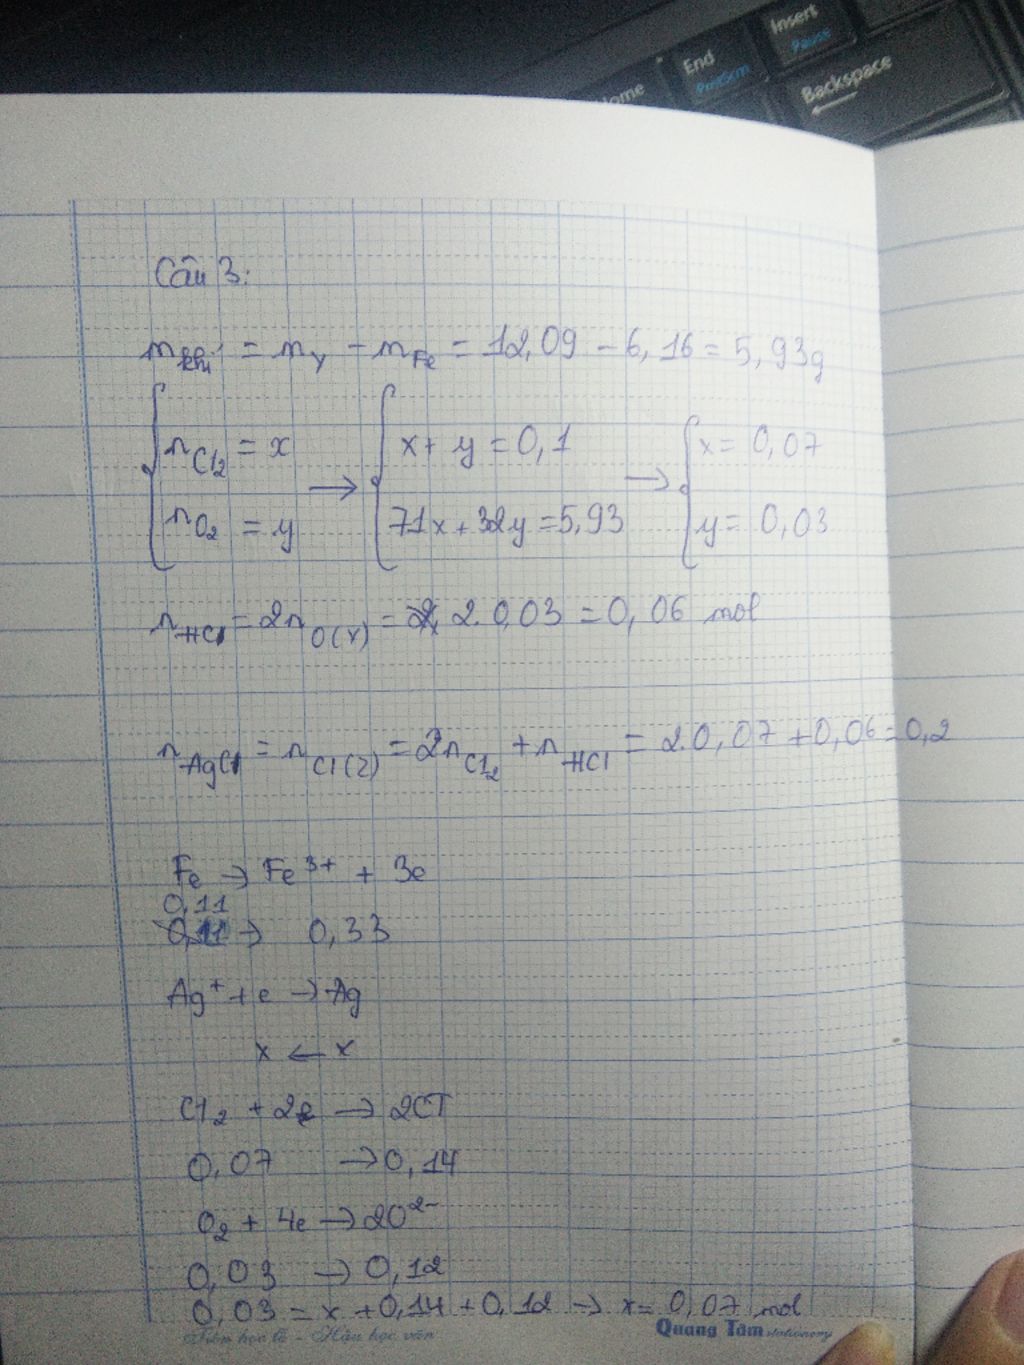 Insert
Pause
End
PrntScrn
Home
Backspace
Câu 3:
m khí = m Y - m Fe = 12,09 - 6,16 = 5,93g
{ n Cl2 = x → { x + y = 0,1 → { x = 0,07
n O2 = y 71x + 32y = 5,93 y = 0,03
n HCl = 2n O(Y) = 2. 0,03 = 0,06 mol
n AgCl = n Cl(Z) = 2n Cl2 + n HCl = 2.0,07 + 0,06 = 0,2
Fe → Fe3+ + 3e
0,11
0,11 → 0,33
Ag+ + e → Ag
x ← x
Cl2 + 2e → 2Cl-
0,07 → 0,14
O2 + 4e → 2O2-
0,03 → 0,12
0,03 = x + 0,14 + 0,12 → x = 0,07 mol
Tiên học lễ - Hậu học văn
Quang Tâm stationery